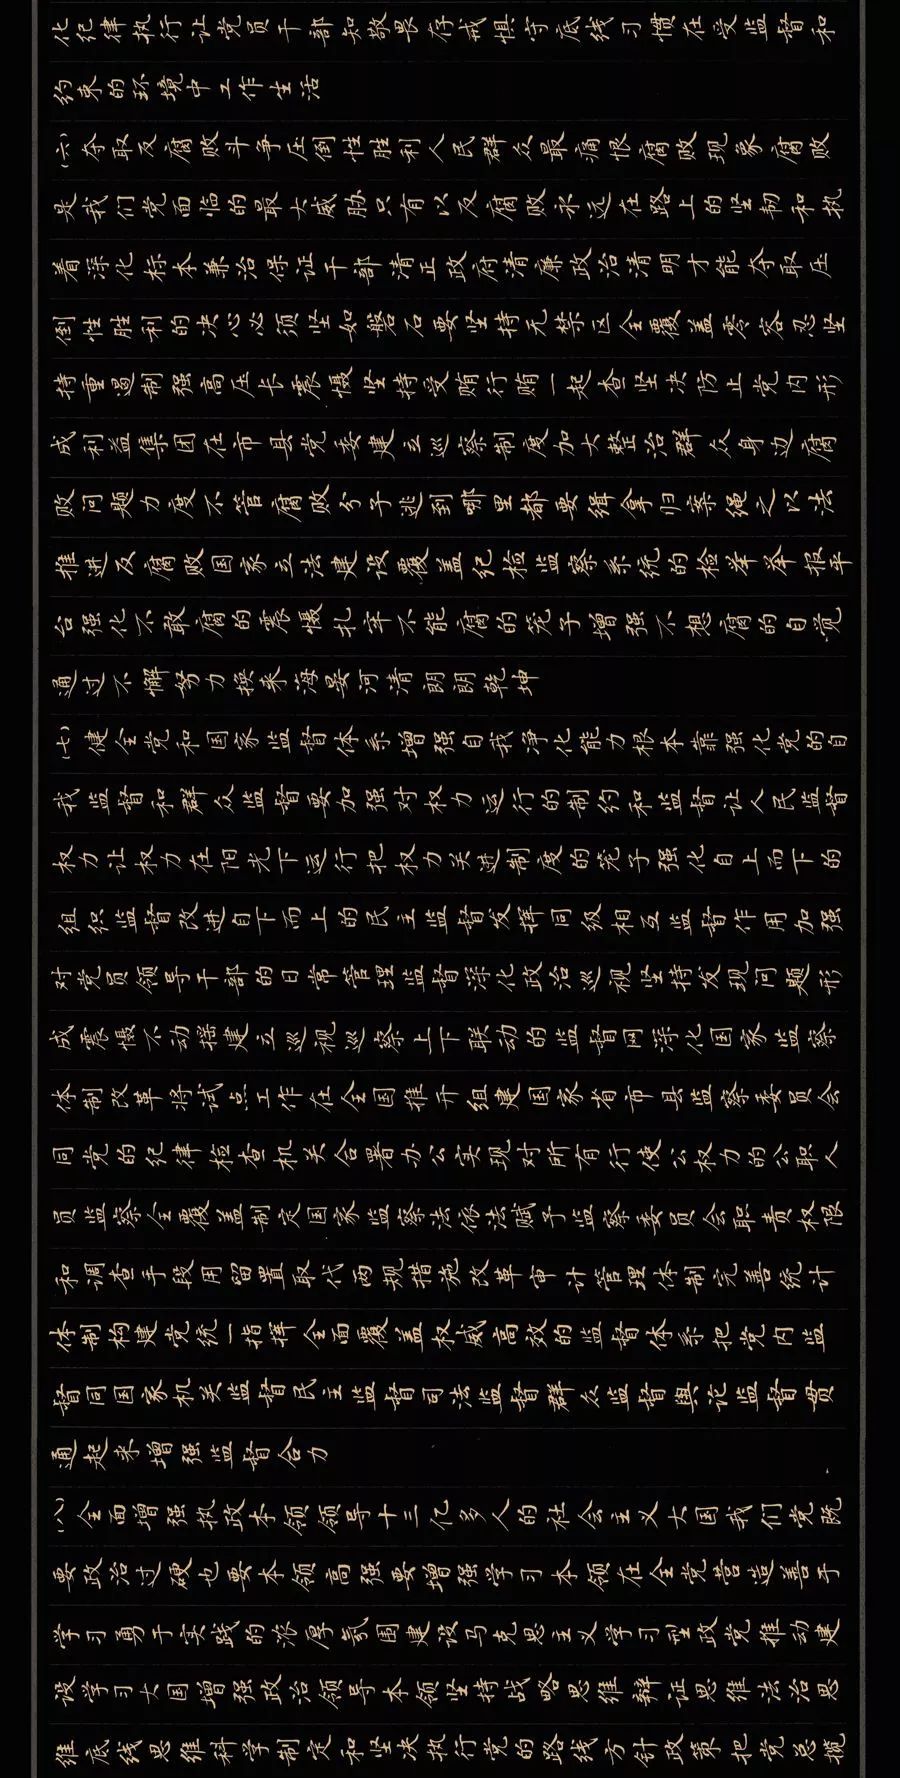 化纪律执行让党员干部知敬畏存戒惧守底线习惯在受监督和
约束的环境中工作生活
(六)夺取反腐败斗争压倒性胜利人民群众最痛恨腐败现象腐败
是我们党面临的最大威胁只有以反腐败永远在路上的坚韧和执
着深化标本兼治保证干部清正政府清廉政治清明才能夺取压
倒性胜利的决心必须坚如磐石要坚持无禁区全覆盖零容忍坚
持重遏制强高压长震慑坚持受贿行贿一起查坚决防止党内形
成利益集团在市县党委建立巡察制度加大整治群众身边腐
败问题力度不管腐败分子逃到哪里都要缉拿归案绳之以法
推进反腐败国家立法建设覆盖纪检监察系统的检举举报平
台强化不敢腐的震慑扎牢不能腐的笼子增强不想腐的自觉
通过不懈努力换来海晏河清朗朗乾坤
(七)健全党和国家监督体系增强自我净化能力根本靠强化党的自
我监督和群众监督要加强对权力运行的制约和监督让人民监督
权力让权力在阳光下运行把权力关进制度的笼子强化自上而下的
组织监督改进自下而上的民主监督发挥同级相互监督作用加强
对党员领导干部的日常管理监督深化政治巡视坚持发现问题形
成震慑不动摇建立巡视巡察上下联动的监督网深化国家监察
体制改革将试点工作在全国推开组建国家省市县监察委员会
同党的纪律检查机关合署办公实现对所有行使公权力的公职人
员监察全覆盖制定国家监察法依法赋予监察委员会职责权限
和调查手段用留置取代两规措施改革审计管理体制完善统计
体制构建党统一指挥全面覆盖权威高效的监督体系把党内监
督同国家机关监督民主监督司法监督群众监督舆论监督贯
通起来增强监督合力
(八)全面增强执政本领领导十三亿多人的社会主义大国我们党既
要政治过硬也要本领高强要增强学习本领在全党营造善于
学习勇于实践的浓厚氛围建设马克思主义学习型政党推动建
设学习大国增强政治领导本领坚持战略思维辩证思维法治思
维底线思维科学制定和坚决执行党的路线方针政策把党总揽